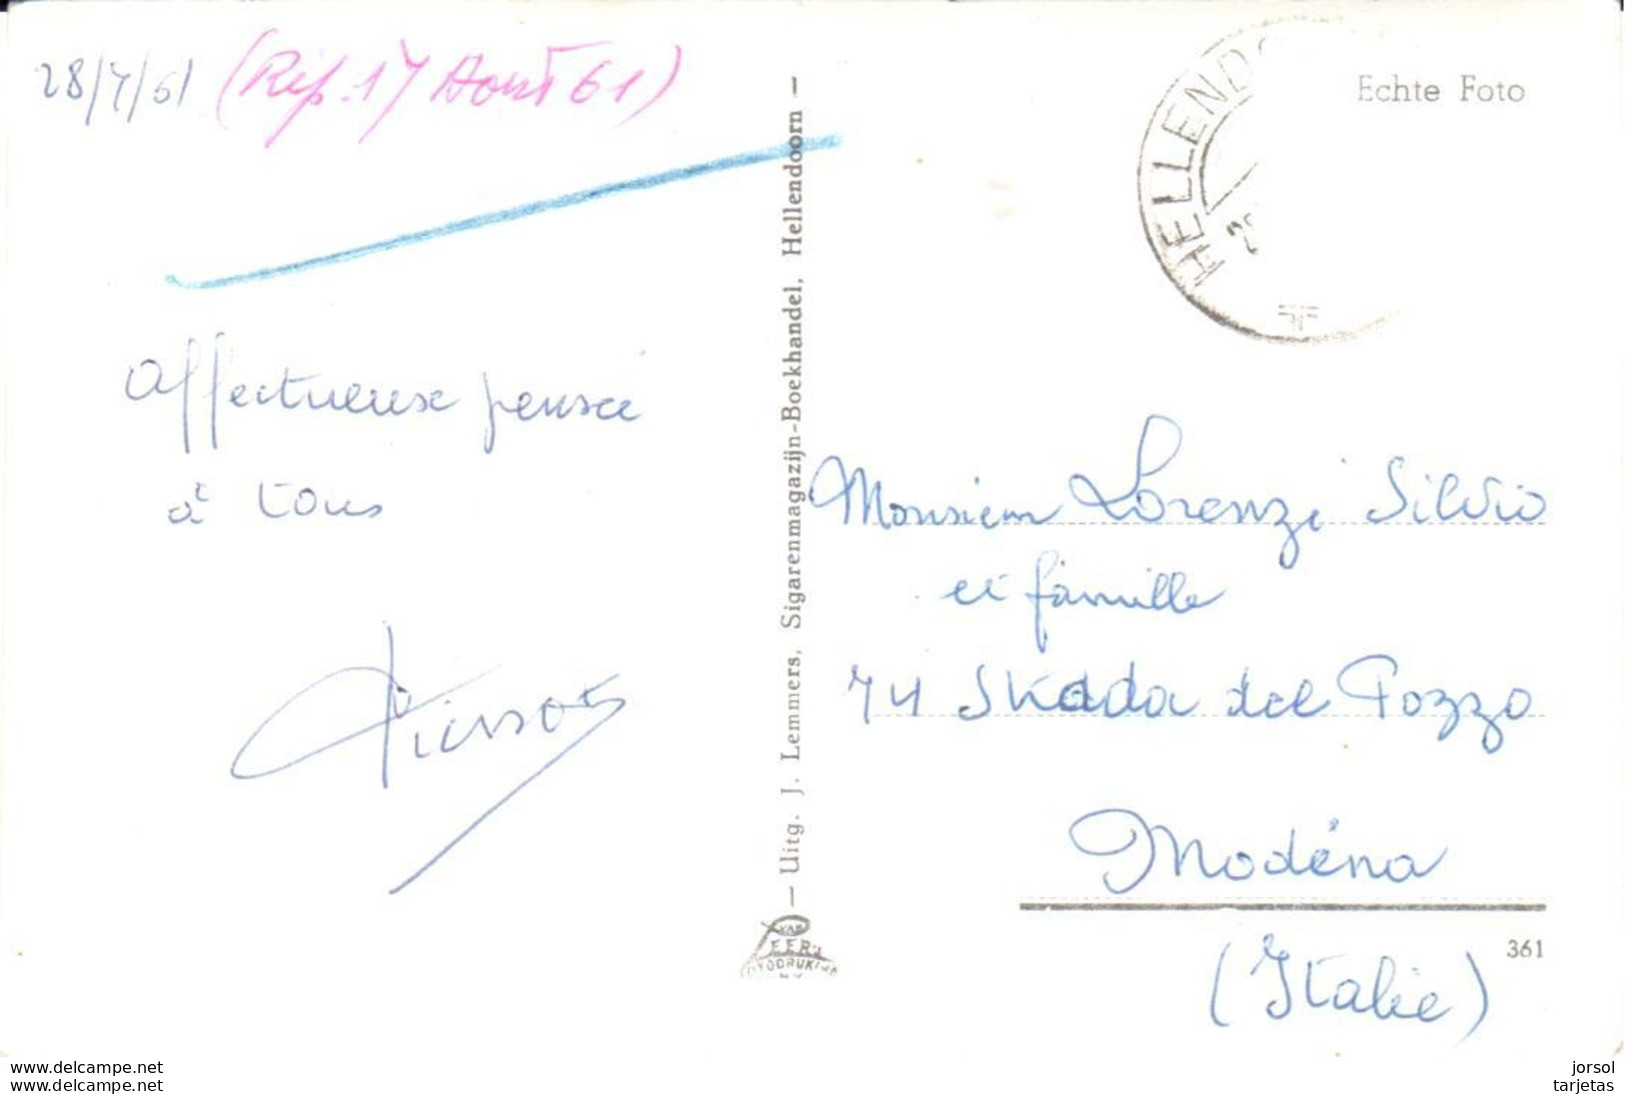 28/7/61 (Rép. 17 Aout 61)
Affectueuse pensée
à tous
— Uitg. J. Lemmers, Sigarenmagazijn-Boekhandel, Hellendoorn —
HELLENDO
Echte Foto
Monsieur Lorenzi Silvio
et famille
74 Skada del Pozzo
Modéna
(Italie)
361
VAN
LEER'S
FOTODRUKIJ
N.V.
www.delcampe.net
www.delcampe.net
jorsol
tarjetas